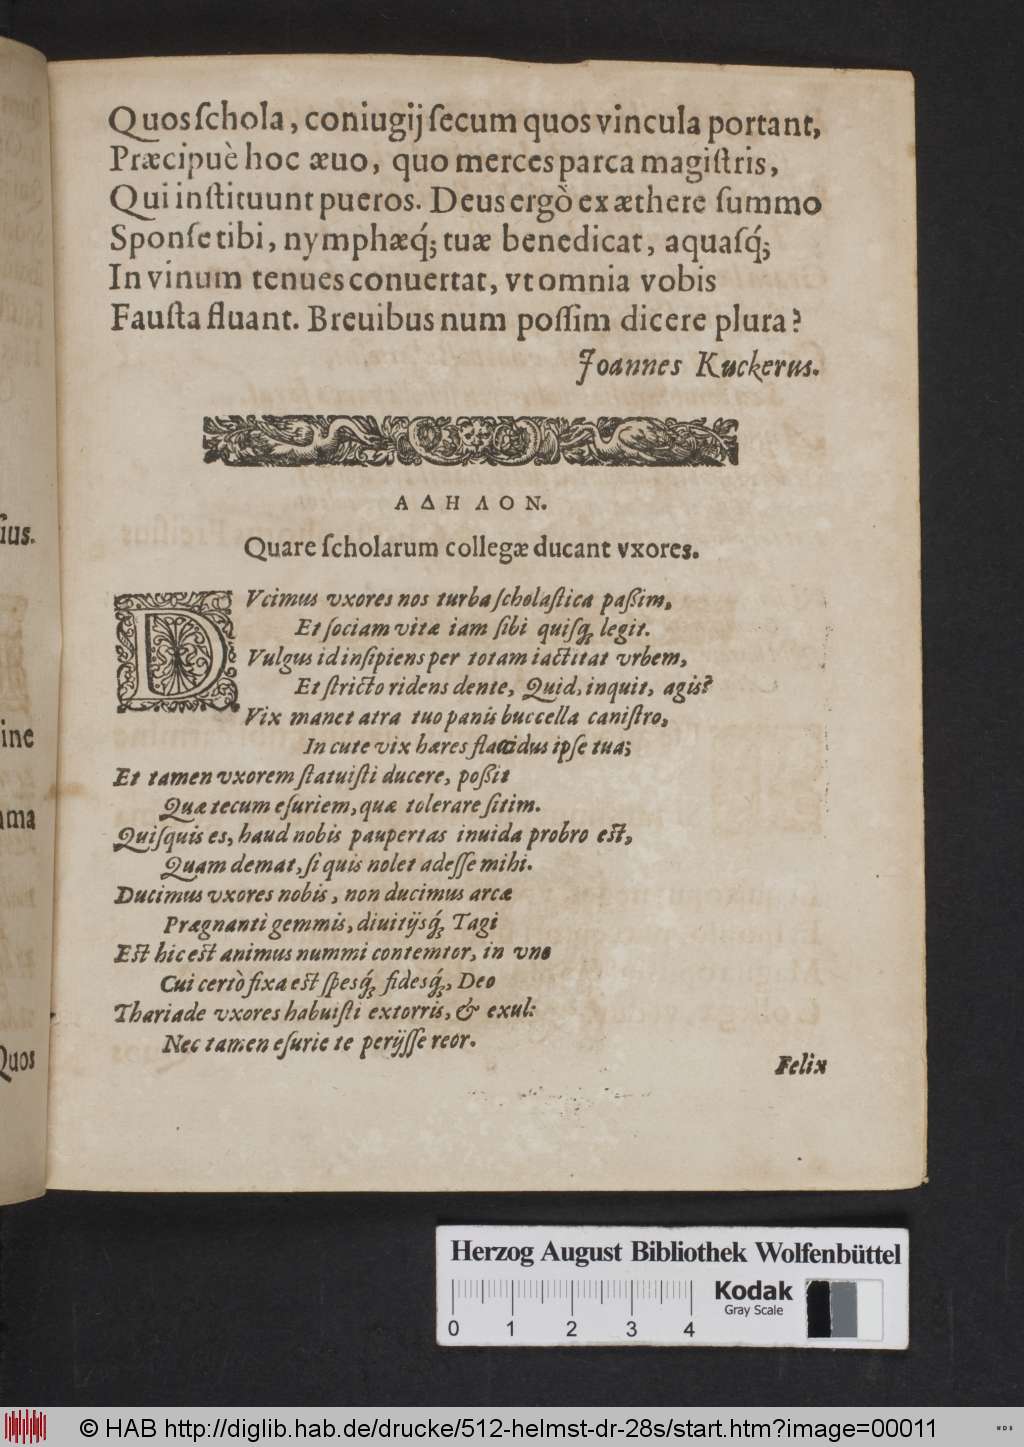 Quos ſchola, coniugij ſecum quos vincula portant,
Præcipuè hoc æuo, quo merces parca magiſtris,
Qui inſtituunt pueros. Deus ergò ex æthere ſummo
Sponſe tibi, nymphæq́; tuæ benedicat, aquaſq́;
In vinum tenues conuertat, vt omnia vobis
Fauſta fluant. Breuibus num poſſim dicere plura?
Joannes Kuckerus.
ΑΔΗΛΟΝ.
Quare ſcholarum collegæ ducant vxores.
DVcimus vxores nos turba ſcholaſtica paßim,
Et ſociam vitæ iam ſibi quiſq; legit.
Vulgus id inſipiens per totam iactitat vrbem,
Et ſtricto ridens dente, Quid, inquit, agis?
Vix manet atra tuo panis buccella caniſtro,
In cute vix hæres flaccidus ipſe tua;
Et tamen vxorem ſtatuiſti ducere, poßit
Quæ tecum eſuriem, quæ tolerare ſitim.
Quiſquis es, haud nobis paupertas inuida probro eſt,
Quam demat, ſi quis nolet adeſſe mihi.
Ducimus vxores nobis, non ducimus arcæ
Prægnanti gemmis, diuitijsq́; Tagi
Eſt hic eſt animus nummi contemtor, in vno
Cui certò fixa eſt ſpesq́; fidesq́;, Deo
Thariade vxores habuiſti extorris, & exul:
Nec tamen eſurie te perijſſe reor.
Felix
ſius.
ine
ma
Quos
Herzog August Bibliothek Wolfenbüttel
0 1 2 3 4
Kodak
Gray Scale
© HAB http://diglib.hab.de/drucke/512-helmst-dr-28s/start.htm?image=00011